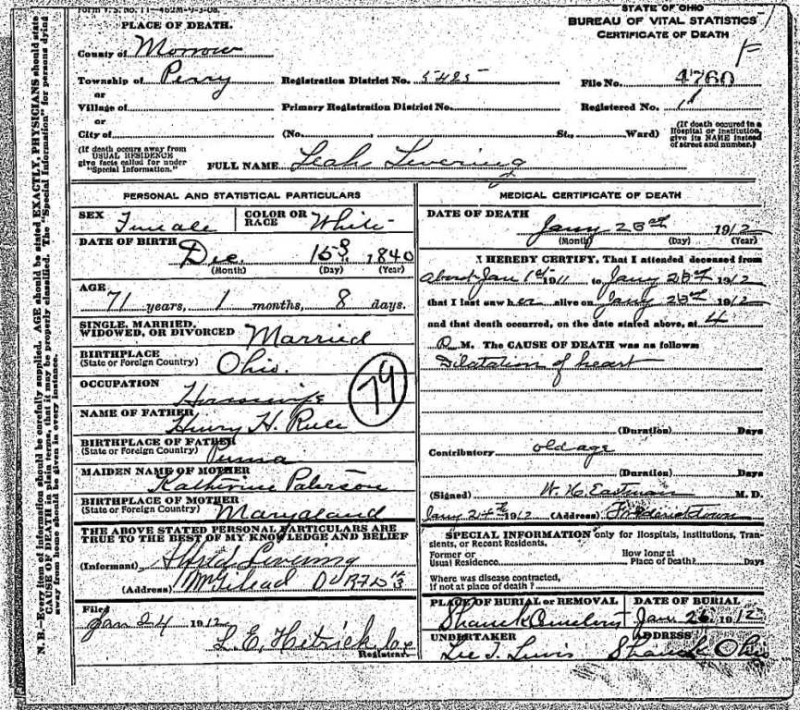 Form V.S. No. 11-
STATE OF OHIO
BUREAU OF VITAL STATISTICS
CERTIFICATE OF DEATH
PLACE OF DEATH.
County of Morrow
Township of Perry Registration District No. 5425 File No. 4760
or
Village of Primary Registration District No. Registered No.
or
City of (No. St., Ward)
(If death occurred in a Hospital or institution, give its NAME instead of street and number.)
(If death occurs away from USUAL RESIDENCE give facts called for under "Special Information.")
FULL NAME Leah Levering
PERSONAL AND STATISTICAL PARTICULARS
SEX Female COLOR OR RACE White
DATE OF BIRTH Dec. 1840
(Month) (Day) (Year)
AGE
71 years, 1 months, 8 days.
SINGLE, MARRIED, WIDOWED, OR DIVORCED Married
BIRTHPLACE
(State or Foreign Country) Ohio.
OCCUPATION Housewife
79
NAME OF FATHER Henry H. Rule
BIRTHPLACE OF FATHER
(State or Foreign Country)
MAIDEN NAME OF MOTHER Katherine Paterson
BIRTHPLACE OF MOTHER
(State or Foreign Country) Maryaland
THE ABOVE STATED PERSONAL PARTICULARS ARE TRUE TO THE BEST OF MY KNOWLEDGE AND BELIEF
(Informant) Levering
(Address) Mt Gilead O
Filed Jan 24 1912
L. E. Hetrick
Registrar.
MEDICAL CERTIFICATE OF DEATH
DATE OF DEATH
Jany 1912
(Month) (Day) (Year)
I HEREBY CERTIFY, That I attended deceased from
About Jan 1st 1911 to Jany 1912
that I last saw her alive on Jany 1912
and that death occurred, on the date stated above, at 4
P. M. The CAUSE OF DEATH was as follows:
Dilatation of heart
(Duration) Days
Contributory old age
(Duration) Days
(Signed) W. H. Eastman M. D.
Jany 24th 1912 (Address) Fredericktown
SPECIAL INFORMATION only for Hospitals, Institutions, Transients, or Recent Residents.
Former or Usual Residence How long at Place of Death? Days
Where was disease contracted,
if not at place of death?
PLACE OF BURIAL OR REMOVAL DATE OF BURIAL
Shauck Cemetery Jan 26 1912
UNDERTAKER ADDRESS
Lee T. Lewis Shauck Ohio
N. B.—Every item of information should be carefully supplied. AGE should be stated EXACTLY. PHYSICIANS should state
CAUSE OF DEATH in plain terms, that it may be properly classified. The "Special Information" for persons dying
away from home should be given in every instance.